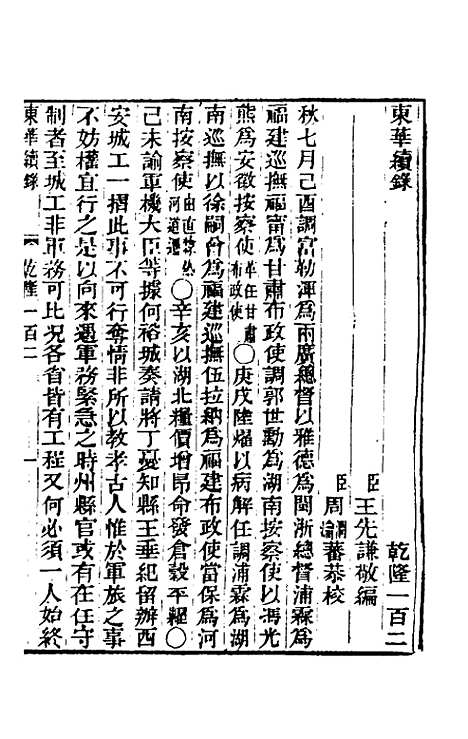 東華續錄
乾隆一百二
臣王先謙敬編
臣周潤蕃周瀹蕃恭校
秋七月己酉調富勒渾爲兩廣總督以雅德爲閩浙總督浦霖爲
福建巡撫福甯爲甘肅布政使調郭世勳爲湖南按察使以馮光
熊爲安徽按察使革任甘肅布政使○庚戌陸燿以病解任調浦霖爲湖
南巡撫以徐嗣曾爲福建巡撫伍拉納爲福建布政使富保爲河
南按察使由直隸熱河道遷○辛亥以湖北糧價增昂命發倉穀平糶○
己未諭軍機大臣等據何裕城奏請將丁憂知縣王垂紀留辦西
安城工一摺此事不可行奪情非所以教孝古人惟於軍旅之事
不妨權宜行之是以向來遇軍務緊急之時州縣官或有在任守
制者至城工非軍務可比況各省皆有工程又何必須一人始終
東華續錄
乾隆一百二
一